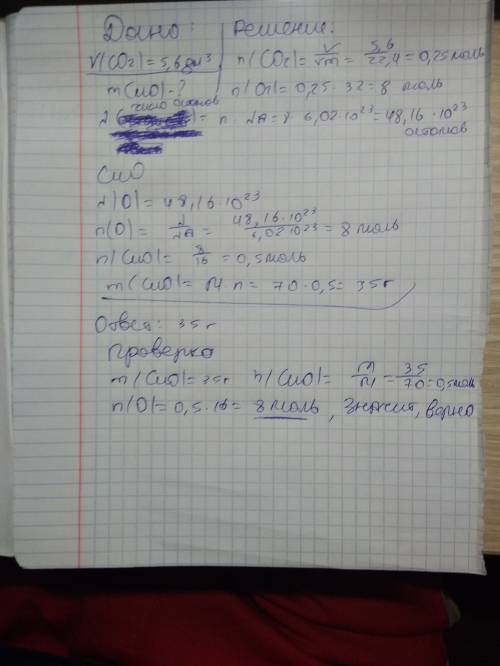 Дано: Решение:
V(CO2)=5,6дм³ n(CO2)= V/Vm = 5,6/22,4 =0,25моль
m(CuO)-? n(O2)=0,25·32=8 моль
число атомов = n· NA=8 6,02·10²³=48,16·10²³
атомов
CuO
N(O)=48,16·10²³
n(O)= N/NA = 48,16·10²³/6,02·10²³ = 8 моль
n(CuO)= 8/16 =0,5моль
m(CuO)= M·n= 70·0,5= 35г
Ответ: 35г
Проверка
m(CuO)=35г n(CuO)= m/M = 35/70=0,5моль
n(O)=0,5·16= 8 моль, Значит, верно